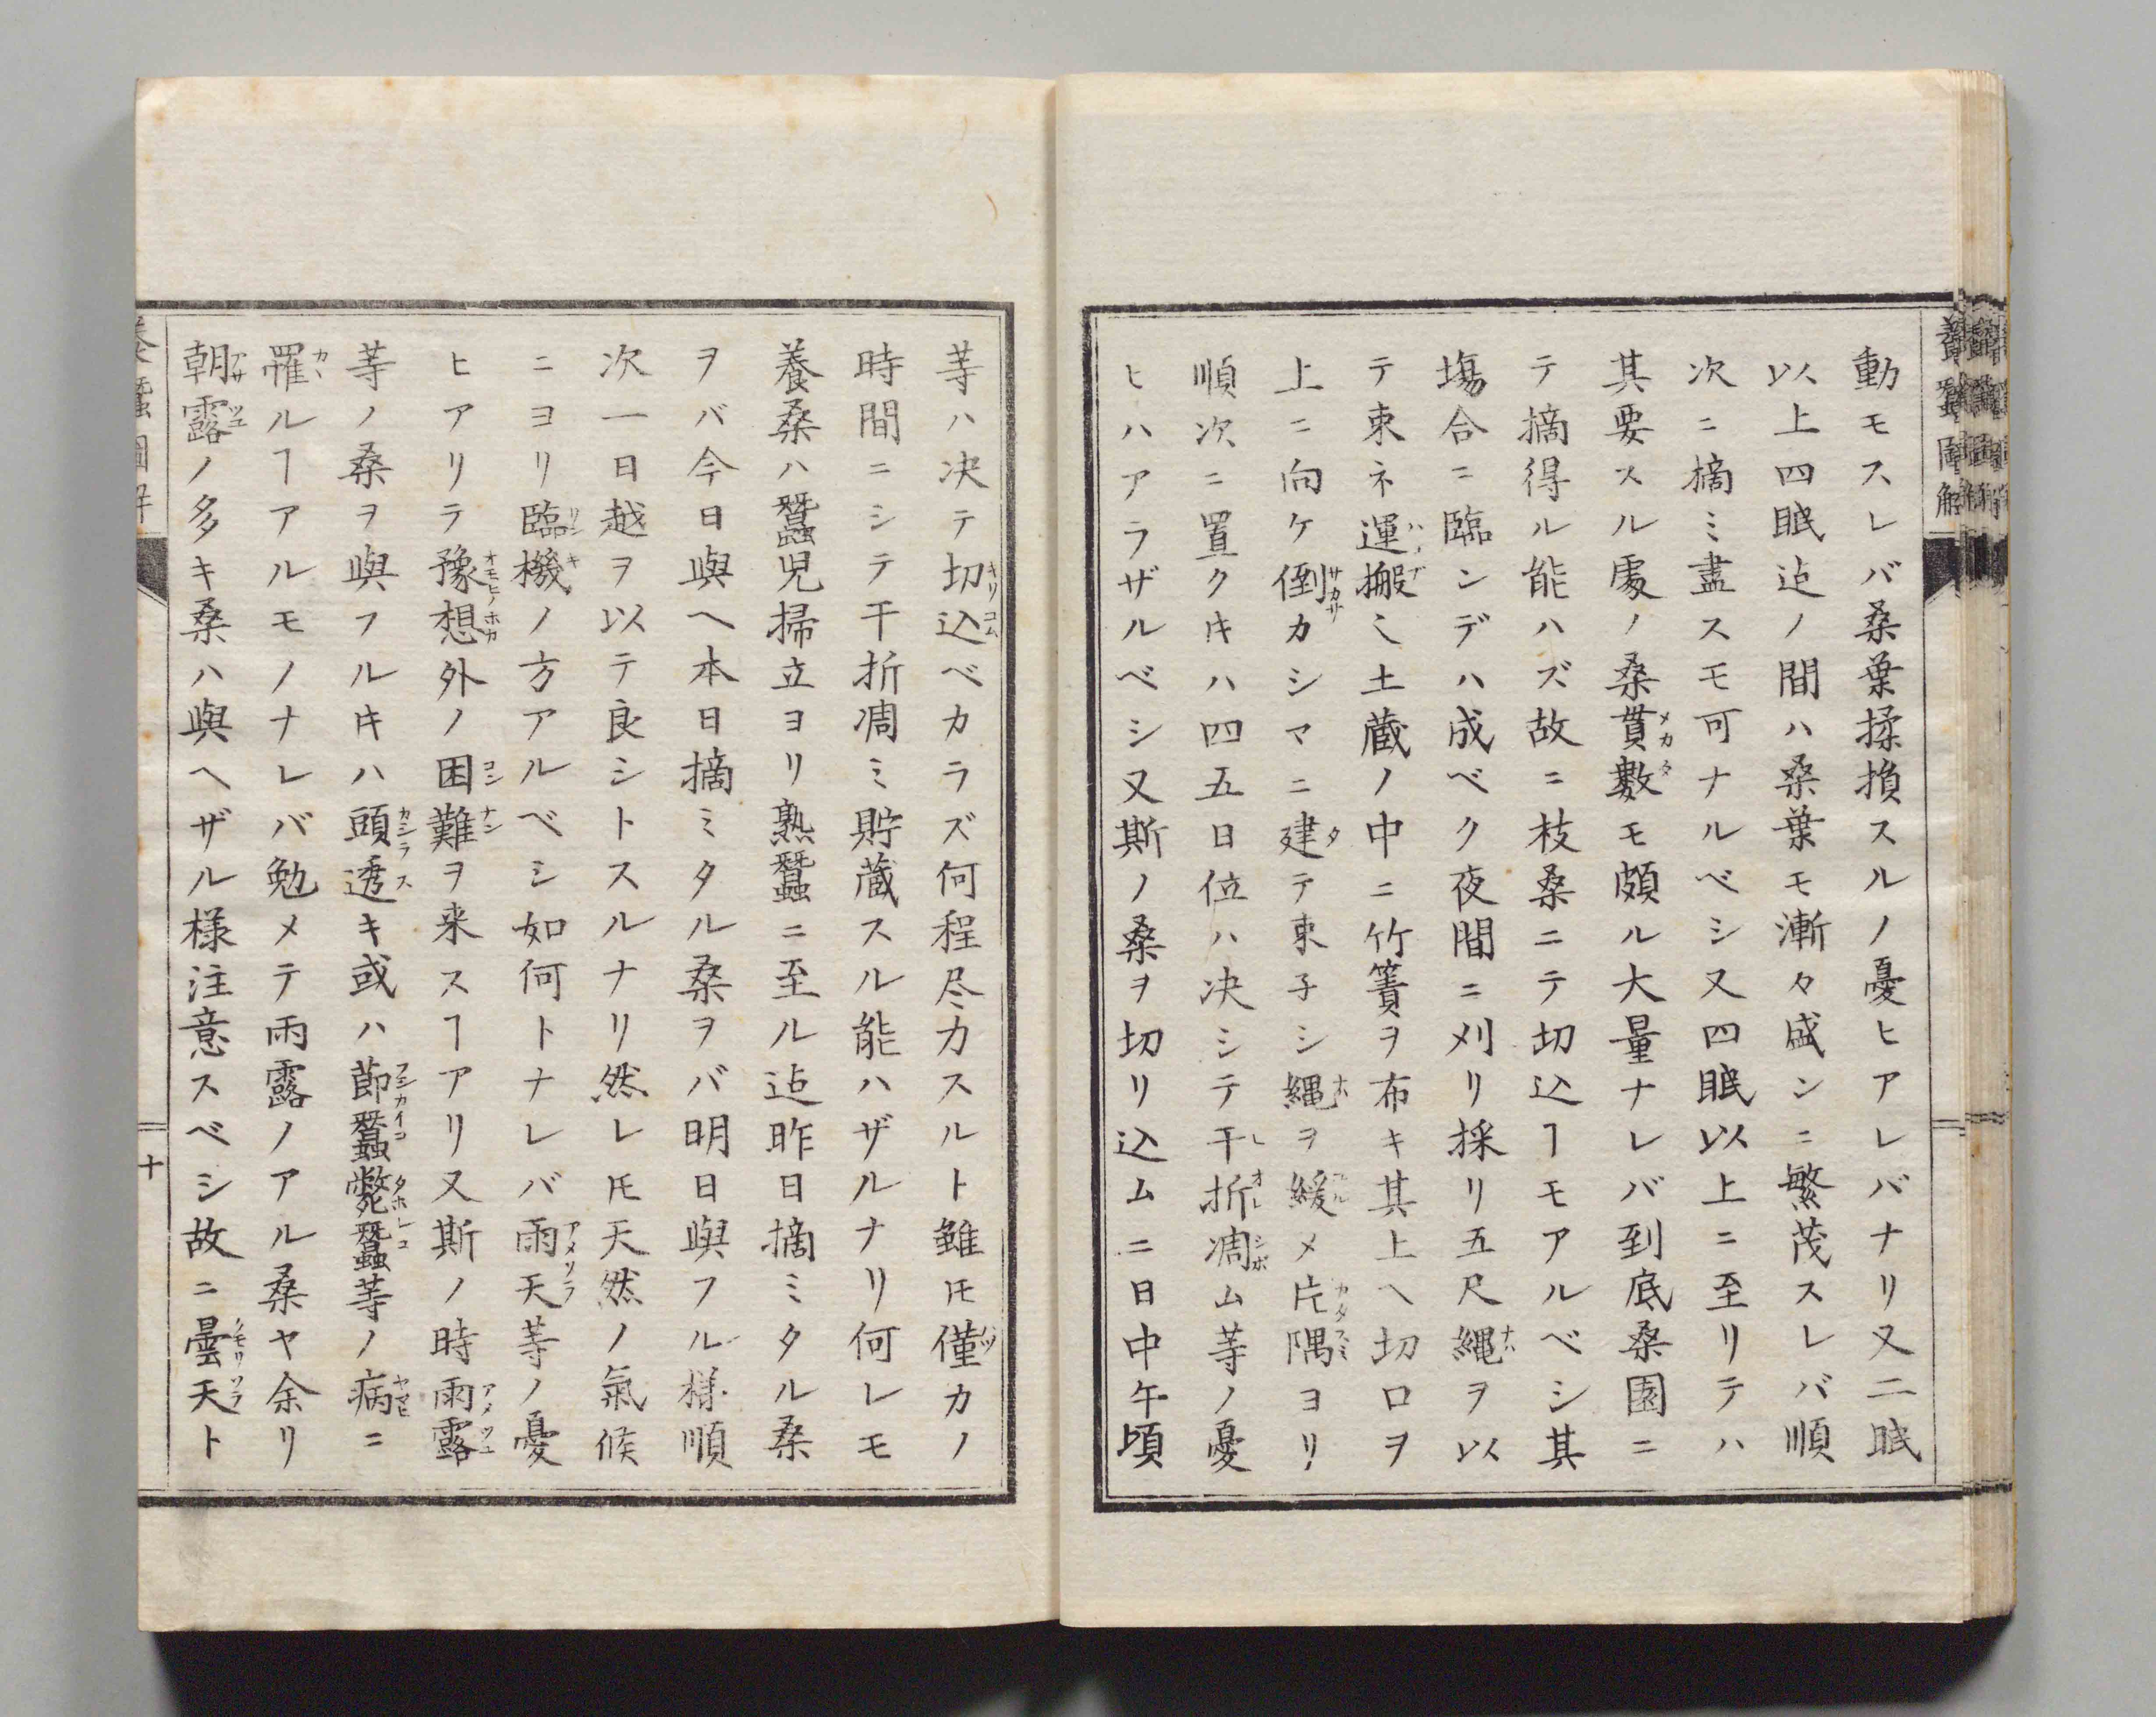 動モスレバ桑葉揉損スルノ憂ヒアレバナリ又二眠
以上四眠迠ノ間ハ桑葉モ漸々盛ンニ繁茂スレバ順
次ニ摘ミ盡スモ可ナルベシ又四眠以上ニ至リテハ
其要スル處ノ桑貫數モ頗ル大量ナレバ到底桑園ニ
テ摘得ル能ハズ故ニ枝桑ニテ切込ヿモアルベシ其
塲合ニ臨ンデハ成ベク夜間ニ刈リ採リ五尺縄ヲ以
テ束ネ運搬ミ土蔵ノ中ニ竹簀ヲ布キ其上ヘ切口ヲ
上ニ向ケ倒カシマニ建テ束子シ縄ヲ緩メ片隅ヨリ
順次ニ置クキハ四五日位ハ决シテ干折凋ム等ノ憂
ヒハアラザルベシ又斯ノ桑ヲ切リ込ムニ日中午頃
等ハ决テ切込ベカラズ何程尽カスルト雖𪜈僅カノ
時間ニシテ干折凋ミ貯蔵スル能ハザルナリ何レモ
養桑ハ蠶児掃立ヨリ熟蠶ニ至ル迠昨日摘ミタル桑
ヲバ今日與ヘ本日摘ミタル桑ヲバ明日與フル様順
次一日越ヲ以テ良シトスルナリ然レ𪜈天然ノ氣候
ニヨリ臨機ノ方アルベシ如何トナレバ雨天等ノ憂
ヒアリテ豫想外ノ困難ヲ来スヿアリ又斯ノ時雨露
等ノ桑ヲ與フルキハ頭透キ或ハ節蠶斃蠶等ノ病ニ
罹ルヿアルモノナレバ勉メテ雨露ノアル桑ヤ余リ
朝露ノ多キ桑ハ與ヘザル様注意スベシ故ニ曇天ト
養蠶圖解
十